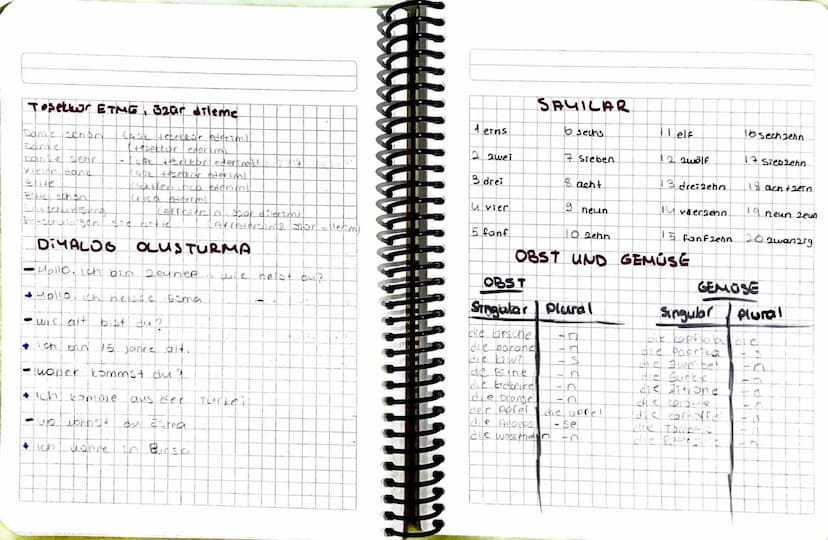 Teşekkür ETME, özür dileme
Danke schön (çok teşekkür ederim)
Danke (teşekkür ederim)
Danke sehr - (çok teşekkür ederim)
vielen dank (çok teşekkür ederim)
Bitte (lütfen, rica ederim)
Bitte schön (rica ederim)
özür dilerim)
sie bitte özür dilerim)
DİYALOG OLUSTURMA
- Hallo. Ich bin Zeynep. wie heist du?
+ Hallo. ich heisse Esma
- wie alt bist du?
+ ich bin 15 jahre alt.
- woher kommst du?
+ ich komme aus der Türkei
- wo wohnst du Esma
+ ich wohne in Bursa
SAYILAR
1 eins 6 sechs 11 elf 16 sechzehn
2 zwei 7 sieben 12 zwölf 17 siebzehn
3 drei 8 acht 13 dreizehn 18 achtzehn
4 vier 9 neun 14 vierzehn 19 neun zeun
5 fünf 10 zehn 15 fünfzehn 20 zwanzig
OBST UND GEMÜSE
OBST GEMÜSE
Singular Plural Singular Plural
die kirsche -n
die banane -n die Paprika -s
die kiwi -s die zwiebel -n
die Birne -n die Gurke -n
die Erdbeere -n die Zitrone -n
die orange -n die -n
der Apfel die äpfel die -n
die Ananas -se die -n
die -n die -n